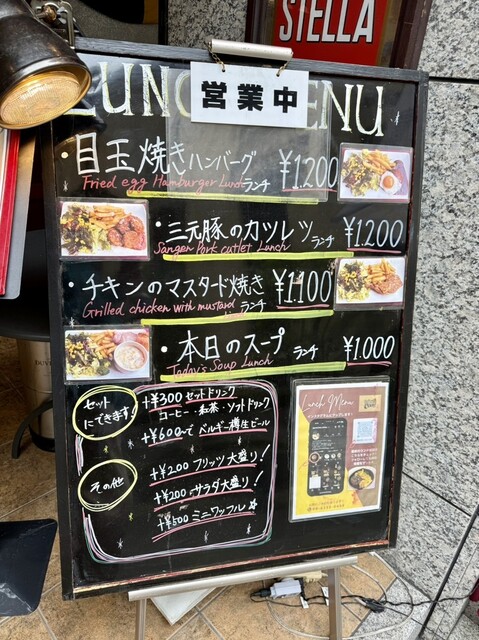 STELLA
LUNCH MENU
営業中
・目玉焼きハンバーグ ランチ ¥1,200
Fried egg Hamburger Lunch
・三元豚のカツレツ ランチ ¥1,200
Sangen Pork cutlet Lunch
・チキンのマスタード焼き ランチ ¥1,100
Grilled chicken with mustard
・本日のスープ ランチ ¥1,000
Today's Soup Lunch
セットにできます!
+¥300 セットドリンク
コーヒー・紅茶・ソフトドリンク
+¥600〜で ベルギー樽生ビール
その他
+¥200 フリッツ大盛り!
+¥200 サラダ大盛り!
+¥500 ミニワッフル☆
Lunch Menu